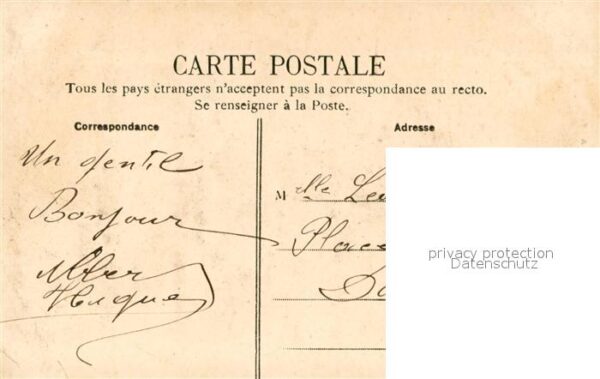 CARTE POSTALE
Tous les pays étrangers n'acceptent pas la correspondance au recto.
Se renseigner à la Poste.
Correspondance
Un gentil
Bonjour
Adresse
Mlle
Place
privacy protection
Datenschutz